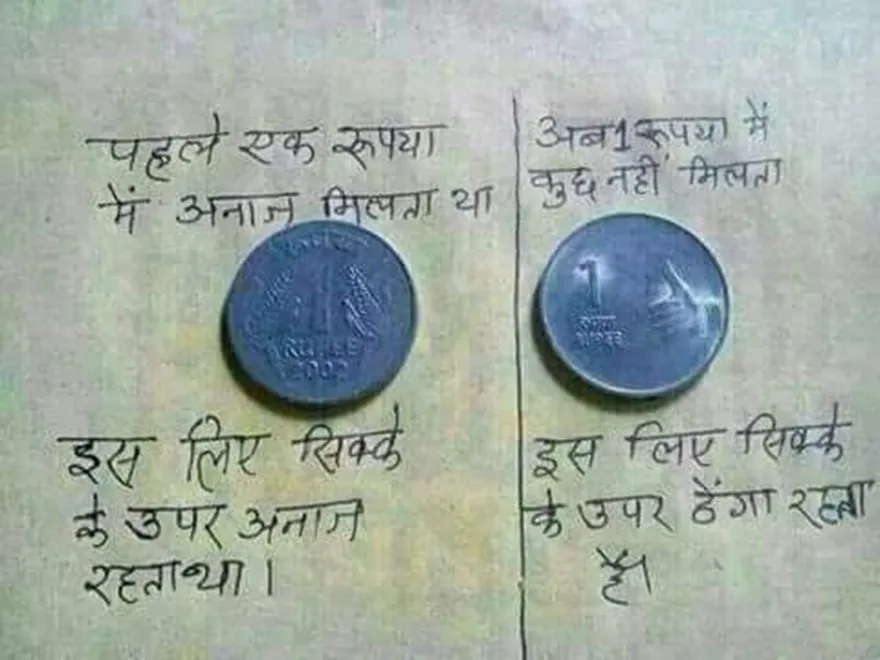 पहले एक रूपया
में अनाज मिलता था
1
RUPEE
2002
इस लिए सिक्के
के उपर अनाज
रहता था।
अब 1 रूपया में
कुछ नहीं मिलता
1
RUPEE
इस लिए सिक्के
के उपर ठेंगा रहता
है।